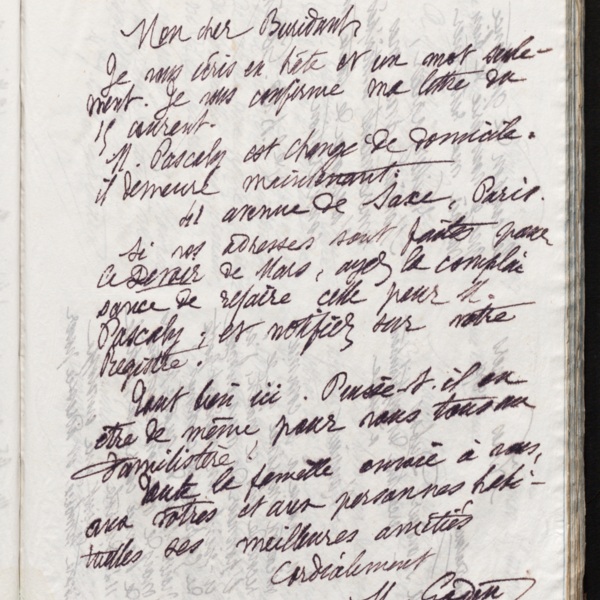 Mon cher Buridant,
Je vous écris en hâte et un mot seule-
ment. Je vous confirme ma lettre du
15 courant.
M. Pascaly est changé de domicile.
il demeure maintenant:
41 avenue de Saxe, Paris.
Si vos adresses sont faites pour
le Devoir de Mars, ayez la complai
sance de refaire celle pour M.
Pascaly; et notifiez sur votre
Registre.
Tout bien ici. Puisse-t-il en
être de même pour vous tous au
Familistère!
Toute la famille envoie à vous,
aux vôtres et aux personnes habi-
tuelles ses meilleures amitiés
Cordialement
M. Godin